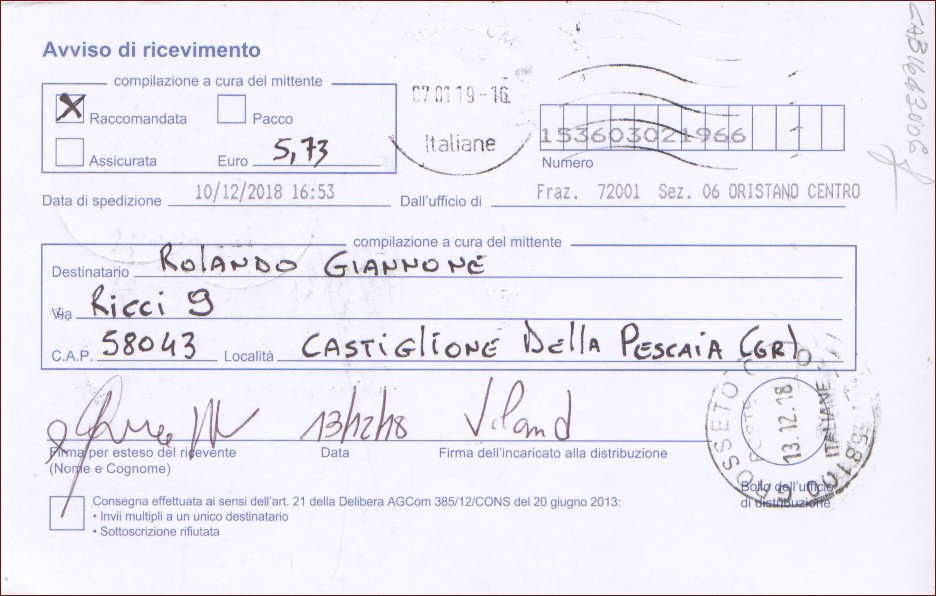 Avviso di ricevimento
compilazione a cura del mittente
X Raccomandata Pacco
Assicurata Euro 5,73
07 01 19-16
Italiane
153603021966
Numero
Data di spedizione 10/12/2018 16:53 Dall'ufficio di Fraz. 72001 Sez. 06 ORISTANO CENTRO
compilazione a cura del mittente
Destinatario ROLANDO GIANNONE
Via Ricci 9
C.A.P. 58043 Località CASTIGLIONE DELLA PESCAIA (GR)
13/12/18
Firma per esteso del ricevente Data Firma dell'incaricato alla distribuzione
(Nome e Cognome)
GROSSETO
13.12.18
ITALIANE
Bollo dell'ufficio
di distribuzione
Consegna effettuata ai sensi dell'art. 21 della Delibera AGCom 385/12/CONS del 20 giugno 2013:
• Invii multipli a un unico destinatario
• Sottoscrizione rifiutata